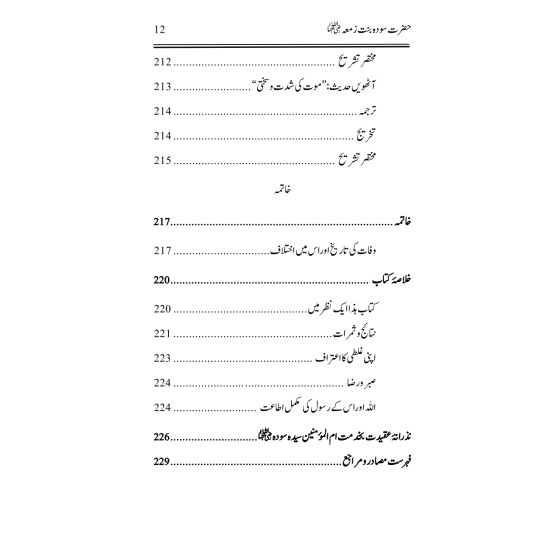 حضرت سودہ بنت زمعہ رضی اللہ عنہا 12
مختصر تشریح ........................................................ 212
آٹھویں حدیث: ”موت کی شدت و سختی“ .......................... 213
ترجمہ ................................................................ 214
تخریج ................................................................ 214
مختصر تشریح ........................................................ 215
خاتمہ
خاتمہ ................................................................ 217
وفات کی تاریخ اور اس میں اختلاف ................................ 217
خلاصۂ کتاب ........................................................ 220
کتاب ہذا ایک نظر میں ............................................ 220
نتائج و ثمرات ...................................................... 221
اپنی غلطی کا اعتراف .............................................. 223
صبر و رضا .......................................................... 224
اللہ اور اس کے رسول کی مکمل اطاعت .......................... 224
نذرانۂ عقیدت بخدمت ام المؤمنین سیدہ سودہ رضی اللہ عنہا .............. 226
فہرست مصادر و مراجع ............................................ 229